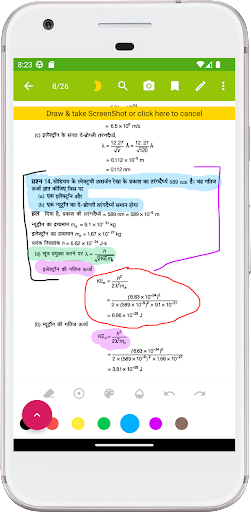 8:23
8/26
Draw & take ScreenShot or click here to cancel
= 6.5 × 10⁶ m/s
(c) इलेक्ट्रॉन के संगत दे-ब्रोग्ली तरंगदैर्घ्य,
λ = 12.27/√V = 12.27/√120 Å
= 0.112 × 10⁻⁹ m
= 0.112 nm
प्रश्न 14. सोडियम के स्पेक्ट्रमी उत्सर्जन रेखा के प्रकाश का तरंगदैर्घ्य 589 nm है। वह गतिज
ऊर्जा ज्ञात कीजिए जिस पर
(a) एक इलेक्ट्रॉन और
(b) एक न्यूट्रॉन का दे-ब्रोग्ली तरंगदैर्घ्य समान होगा
हल दिया है, प्रकाश की तरंगदैर्घ्य = 589 nm = 589 × 10⁻⁹ m
न्यूट्रॉन का द्रव्यमान mₑ = 9.1 × 10⁻³¹ kg
इलेक्ट्रॉन का द्रव्यमान mₙ = 1.67 × 10⁻²⁷ kg
प्लांक नियतांक h = 6.62 × 10⁻³⁴ J-s
(a) सूत्र प्रयुक्त करने पर λ = h/√2KEmₑ
इलेक्ट्रॉन की गतिज ऊर्जा
KEₑ = h²/2λ²mₑ
= (6.63 × 10⁻³⁴)²/2 × (589 × 10⁻⁹)² × 9.1 × 10⁻³¹
= 6.96 × 10⁻²⁵ J
(b) न्यूट्रॉन की गतिज ऊर्जा
KEₙ = h²/2λ²mₙ
= (6.63 × 10⁻³⁴)²/2 × (589 × 10⁻⁹)² × 1.66 × 10⁻²⁷
= 3.81 × 10⁻²⁸ J